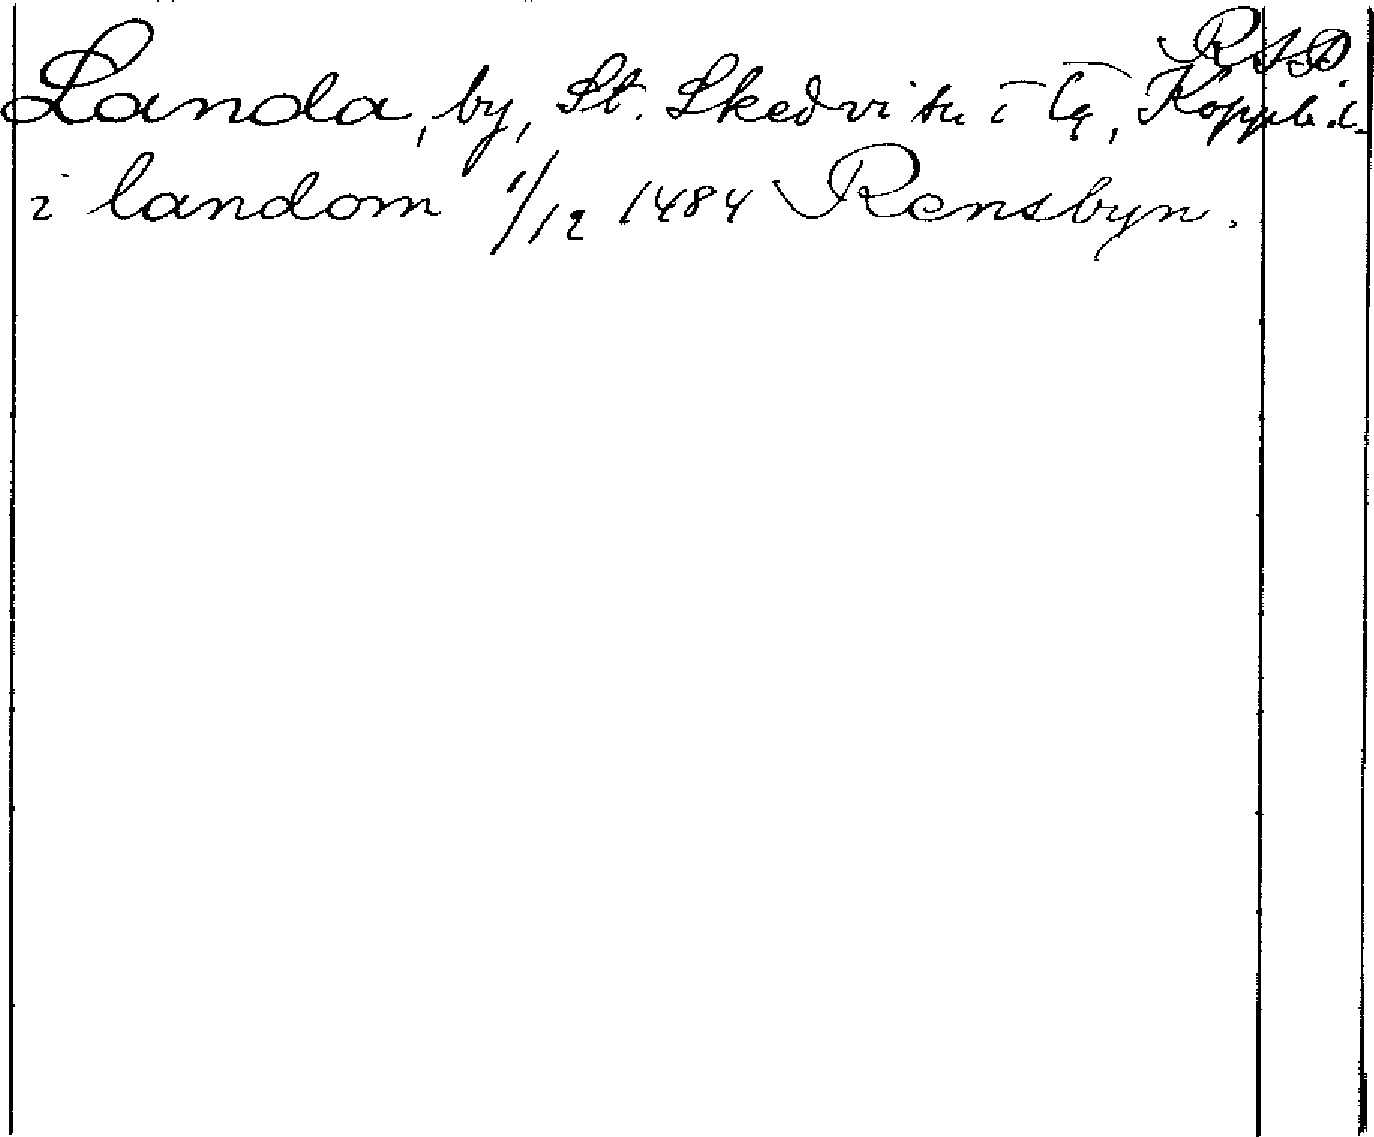 RSD
Landa, by, St. Skedvi sn i, Koppb. l.
i landom 1/12 1484 Rensbyn.